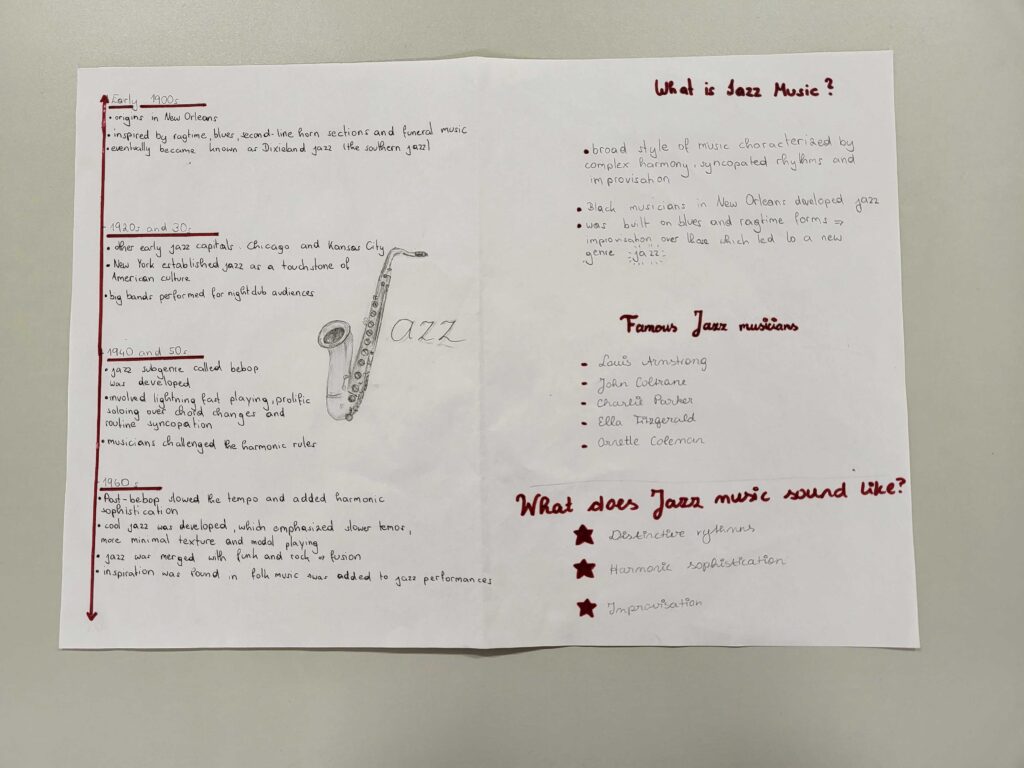 Early 1900s
• origins in New Orleans
• inspired by ragtime, blues, second-line horn sections and funeral music
• eventually became known as Dixieland jazz (the southern jazz)
1920s and 30s
• other early jazz capitals: Chicago and Kansas City
• New York established jazz as a touchstone of
American culture
• big bands performed for nightclub audiences
azz
1940 and 50s
• jazz subgenre called bebop
was developed
• involved lightning fast playing, prolific
soloing over chord changes and
routine syncopation
• musicians challenged the harmonic rules
1960s
• Post-bebop slowed the tempo and added harmonic
sophistication
• cool jazz was developed, which emphasized slower temos,
more minimal texture and modal playing
• jazz was merged with funk and rock → fusion
• inspiration was found in folk music was added to jazz performances
What is Jazz Music?
• broad style of music characterized by
complex harmony, syncopated rhythms and
improvisation
• Black musicians in New Orleans developed jazz
• was built on blues and ragtime forms ⇒
improvisation over those which led to a new
genre jazz
Famous Jazz musicians
- Louis Armstrong
- John Coltrane
- Charlie Parker
- Ella Fitzgerald
- Ornette Coleman
What does Jazz music sound like?
★ Distinctive rythmns
★ Harmonic sophistication
★ Improvisation